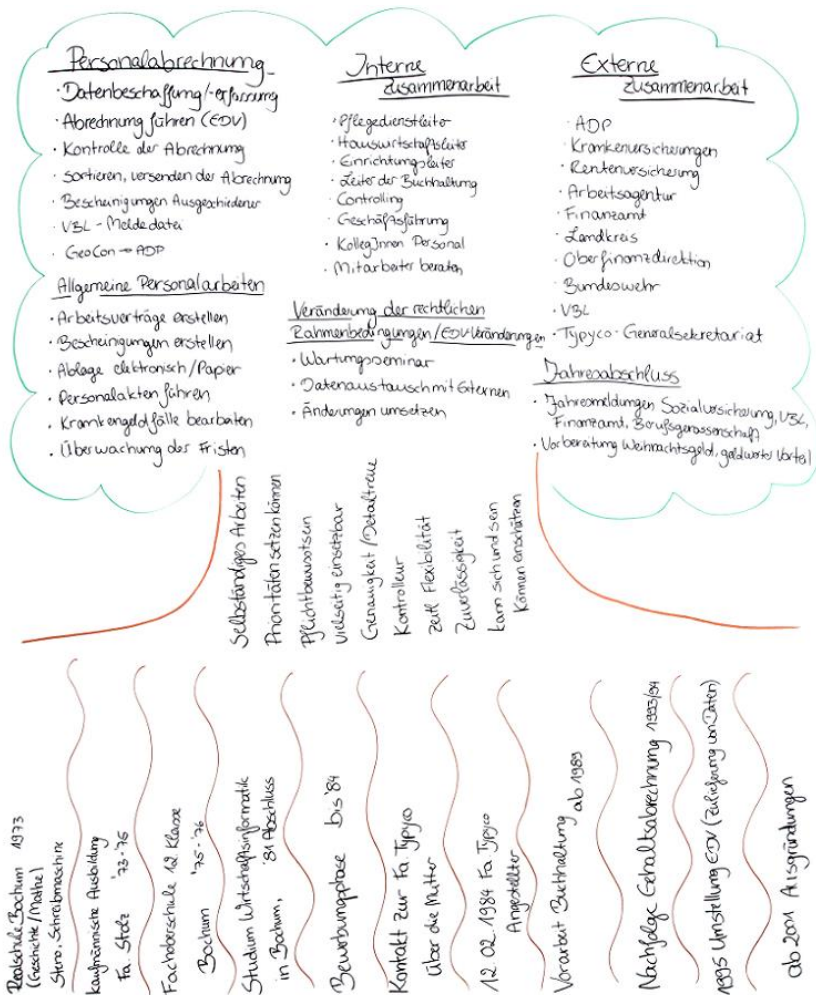 Personalabrechnung
· Datenbeschaffung/-erfassung
· Abrechnung führen (EDV)
· Kontrolle der Abrechnung
· Sortieren, versenden der Abrechnung
· Bescheinigungen Ausgeschiedener
· VBL - Meldedatei
· GeoCon → ADP
Allgemeine Personalarbeiten
· Arbeitsverträge erstellen
· Bescheinigungen erstellen
· Ablage elektronisch/Papier
· Personalakten führen
· Krankengeldfälle bearbeiten
· Überwachung der Fristen
Interne
Zusammenarbeit
· Pflegedienstleiter
· Hauswirtschaftsleiter
· Einrichtungsleiter
· Leiter der Buchhaltung
· Controlling
· Geschäftsführung
· KollegInnen Personal
· Mitarbeiter beraten
Veränderung der rechtlichen
Rahmenbedingungen/EDV Veränderungen
· Wartungsseminar
· Datenaustausch mit Externen
· Änderungen umsetzen
Externe
Zusammenarbeit
· ADP
· Krankenversicherungen
· Rentenversicherung
· Arbeitsagentur
· Finanzamt
· Landkreis
· Oberfinanzdirektion
· Bundeswehr
· VBL
· Typyco - Generalsekretariat
Jahresabschluss
· Jahresmeldungen Sozialversicherung, VBL,
Finanzamt, Berufsgenossenschaft
· Vorbereitung Weihnachtsgeld, geldwerter Vorteil
Selbständiges Arbeiten
Prioritäten setzen können
Pflichtbewusstsein
Vielseitig einsetzbar
Genauigkeit/Detailtreue
Kontrolleur
zeitl Flexibilität
Zuverlässigkeit
kann sich und sein
Können einschätzen
Realschule Bochum 1973
(Geschichte/Mathe)
Steno, Schreibmaschine
kaufmännische Ausbildung
Fa. Stolz '73-'75
Fachoberschule 12 Klasse
Bochum '75-'76
Studium Wirtschaftsinformatik
in Bochum, '81 Abschluss
Bewerbungsphase bis '84
Kontakt zur Fa. Typyco
über die Mutter
12.02.1984 Fa Typyco
Angestellter
Vorarbeit Buchhaltung ab 1989
Nachfolge Gehaltsabrechnung 1993/94
1995 Umstellung EDV (Zulieferung von Daten)
ab 2001 Ausgründungen